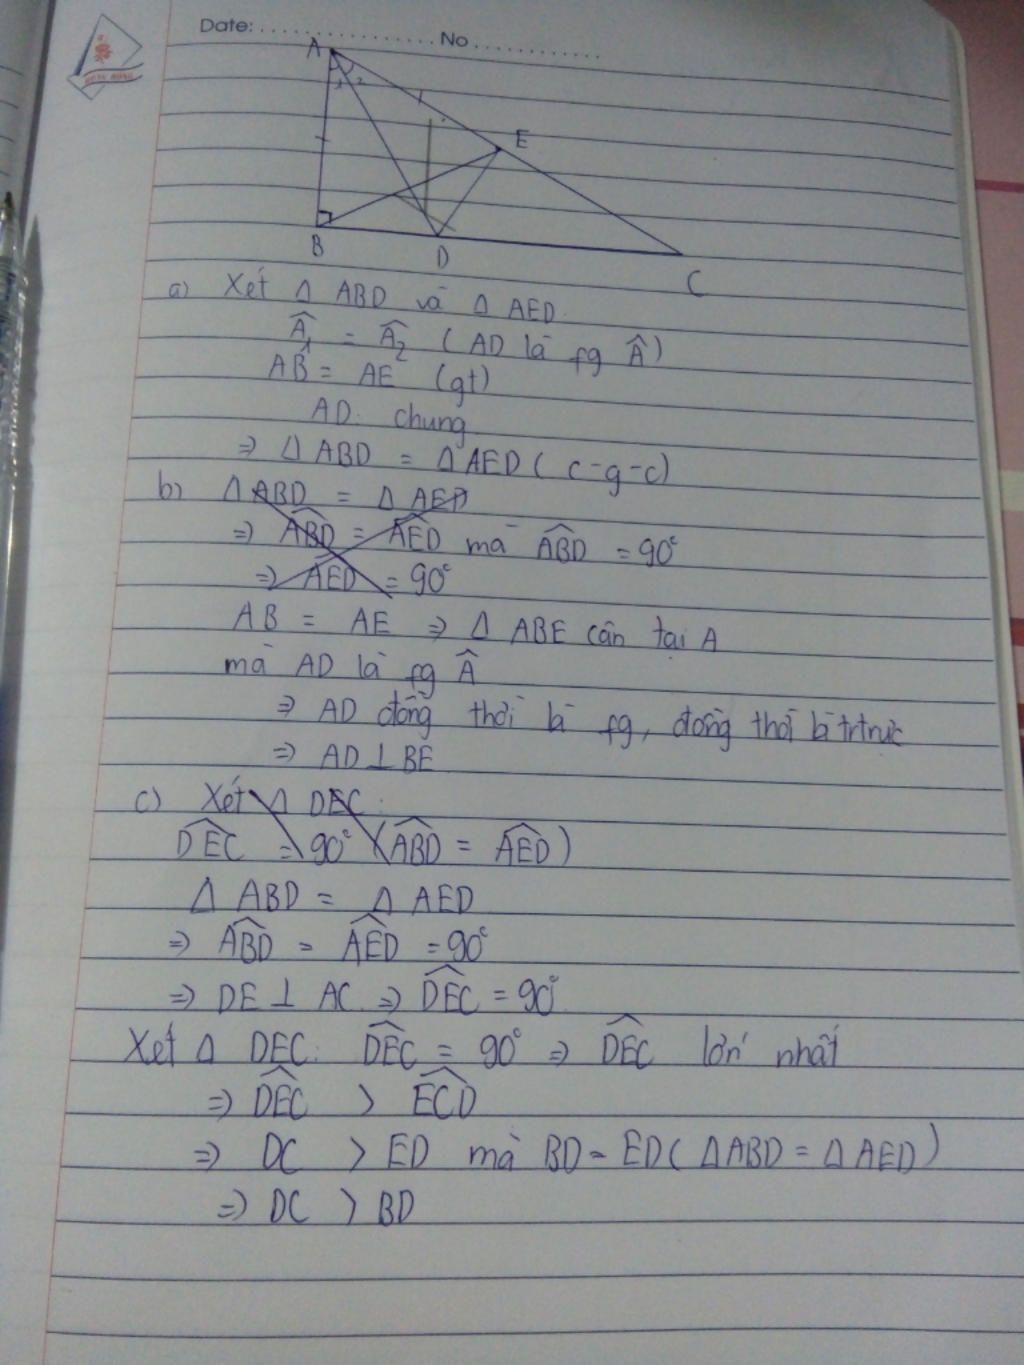 Date: .................. No ............
A
1 2
E
B
D
C
a) Xét Δ ABD và Δ AED
Â₁ = Â₂ (AD là fg Â)
AB = AE (gt)
AD chung
⇒ Δ ABD = Δ AED ( c-g-c)
b) Δ ABD = Δ AED
⇒ ABD̂ = AED̂ mà ABD̂ = 90°
⇒ AED = 90°
AB = AE ⇒ Δ ABE cân tại A
mà AD là fg Â
⇒ AD đồng thời là fg, đồng thời là trtrực
⇒ AD ⊥ BE
c) Xét Δ DEC:
DEĈ = 90° (ABD̂ = AED̂)
Δ ABD = Δ AED
⇒ ABD̂ = AED̂ = 90°
⇒ DE ⊥ AC ⇒ DEĈ = 90°
Xét Δ DEC: DEĈ = 90° ⇒ DEĈ lớn nhất
⇒ DEĈ > ECD̂
⇒ DC > ED mà BD = ED ( ΔABD = Δ AED )
⇒ DC > BD